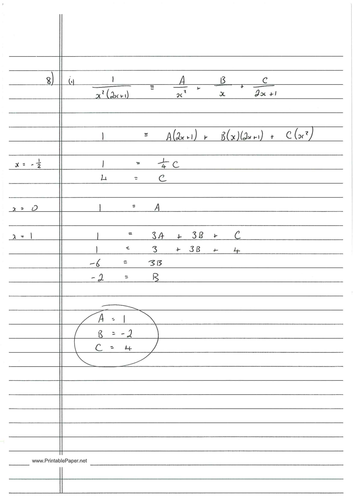 8) (i) 1/(x²(2x+1)) ≡ A/x² + B/x + C/(2x+1)
1 ≡ A(2x+1) + B(x)(2x+1) + C(x²)
x = -½ 1 = ¼C
4 = C
x = 0 1 = A
x = 1 1 = 3A + 3B + C
1 = 3 + 3B + 4
-6 = 3B
-2 = B
A = 1
B = -2
C = 4
www.PrintablePaper.net